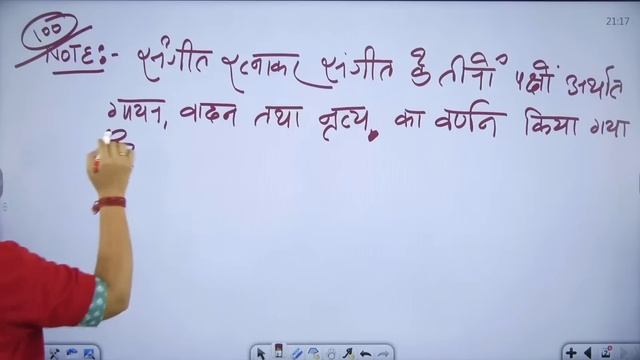 100
NOTE:- संगीत रत्नाकर संगीत के तीनों पक्षों अर्थात
गायन, वादन तथा नृत्य का वर्णन किया गया
21:17